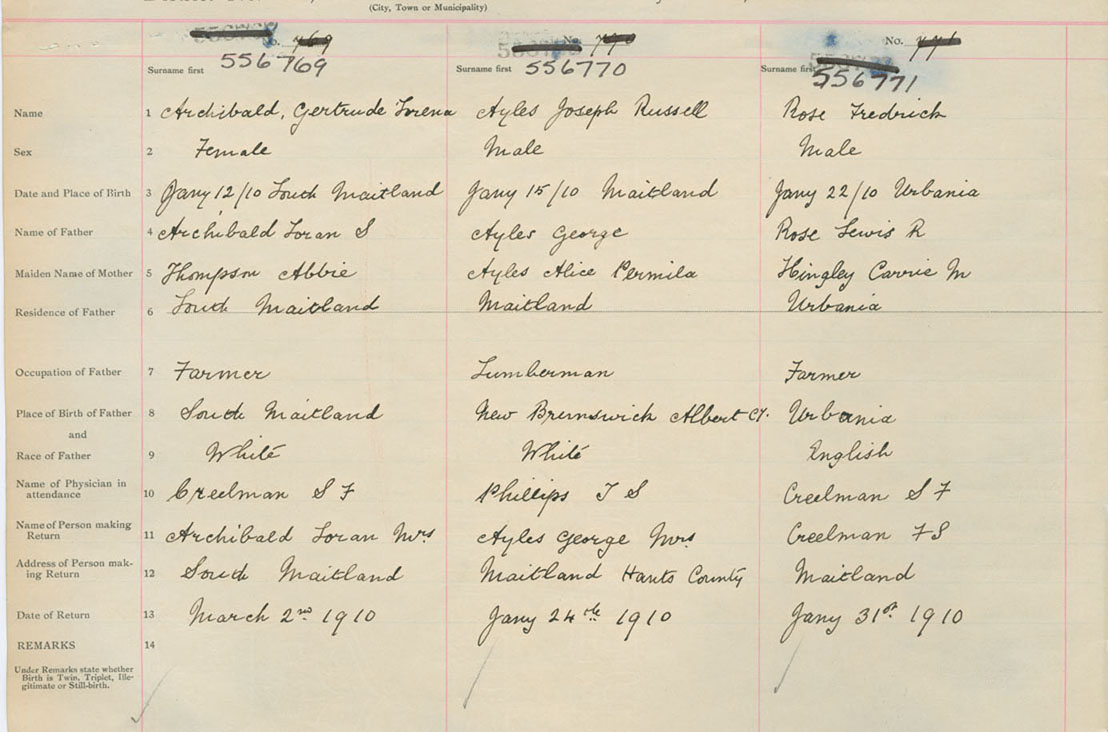 (City, Town or Municipality)
No. 769 No. 770 No.
556769 556770 556771
Surname first Surname first Surname first
Name 1 Archibald, Gertrude Lorena Ayles Joseph Russell Rose Fredrick
Sex 2 Female Male Male
Date and Place of Birth 3 Jany 12/10 South Maitland Jany 15/10 Maitland Jany 22/10 Urbania
Name of Father 4 Archibald Loran S Ayles George Rose Lewis R
Maiden Name of Mother 5 Thompson Abbie Ayles Alice Permila Hingley Carrie M
Residence of Father 6 South Maitland Maitland Urbania
Occupation of Father 7 Farmer Lumberman Farmer
Place of Birth of Father 8 South Maitland New Brunswick Albert Cy. Urbania
and
Race of Father 9 White White English
Name of Physician in
attendance 10 Creelman S F Phillips T S Creelman S F
Name of Person making
Return 11 Archibald Loran Mrs Ayles George Mrs Creelman F S
Address of Person mak-
ing Return 12 South Maitland Maitland Hants County Maitland
Date of Return 13 March 2nd 1910 Jany 24th 1910 Jany 31st 1910
REMARKS 14
Under Remarks state whether
Birth is Twin, Triplet, Ille-
gitimate or Still-birth.